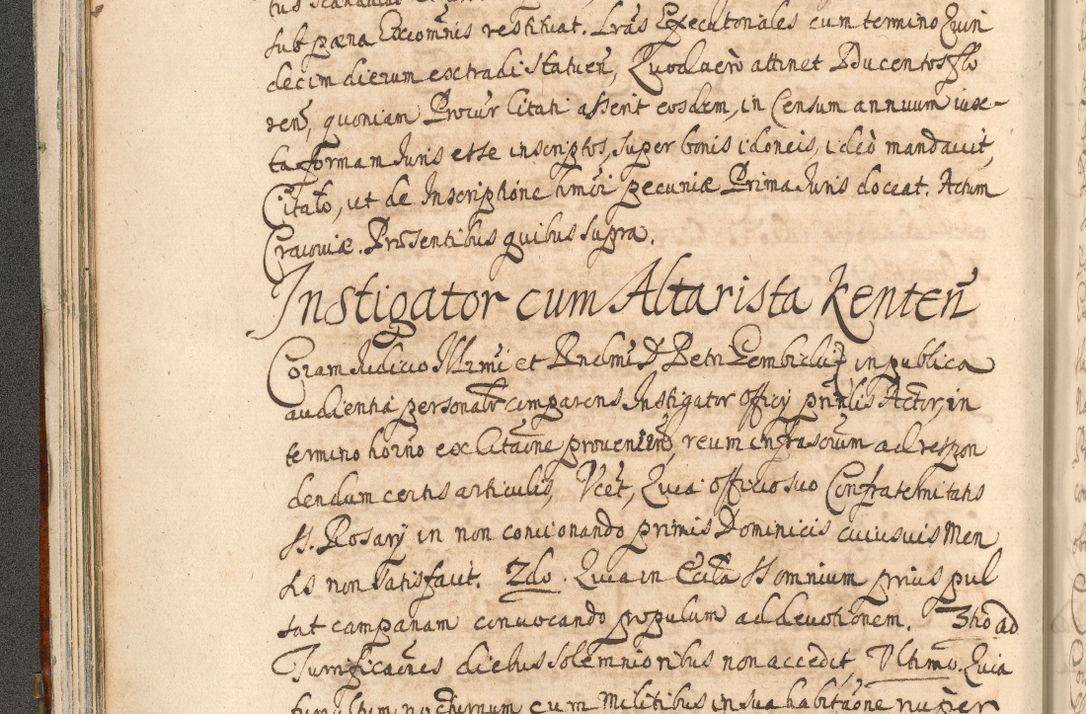 sub pæna Excom̃nis restituat. Lras Executoriales cum termino Quin
decim dierum extradi statuen̄, Quod verò attinet Ducentos flo
ren̄, quoniam Procur̃ Citati asserit eosdem, in Censum annuum iux-
ta formam Iuris esse inscriptos, super bonis idoneis, ideò mandavit,
Citato, ut de Inscriptione hmõi pecuniæ Prima Iuris doceat. Actum
Cracoviæ. Prõsentibus quibus supra.
Instigator cum Altarista Kenten̄
Coram Iudicio Illr̃mi et Rndmi D. Petri Gembicki in publica
audientia personalr̃ comparens Instigator Officÿ prñlis Actor, in
termino horno ex Citatione provenien̄, reum infrascrũm ad respon
dendum certis articulis, Vcet, Quia officio suo Confraternitatis
S. Rosarÿ in non concionando primis Dominicis cuiusvis Men
sis non satisfacit. 2do. Quia in Eccl̃a S. Omnium prius pul
sat campanam convocando populum ad devotionem. 3tio ad
Turrificac̃nes diebus solemnioribus non accedit Ultimò. Quia
tumultum nocturnum cum Militibus in sua habitac̃ne nuper